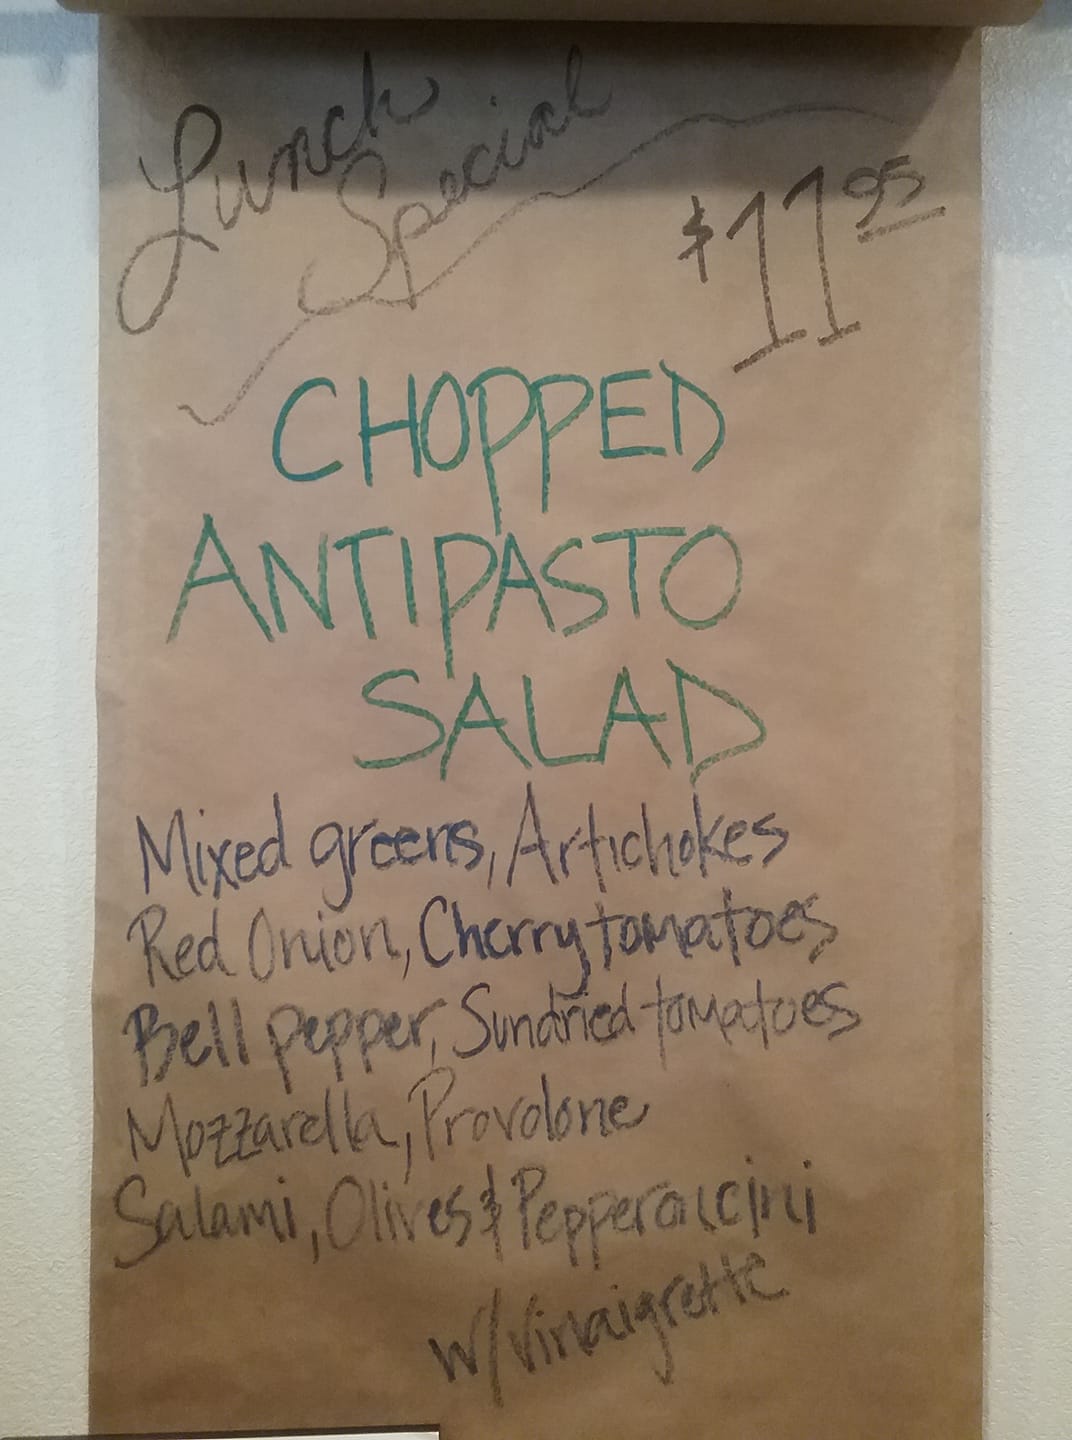 Lunch
Special
$11.95
CHOPPED
ANTIPASTO
SALAD
Mixed greens, Artichokes
Red Onion, Cherry tomatoes
Bell pepper, Sundried tomatoes
Mozzarella, Provolone
Salami, Olives & Pepperoncini
w/Vinaigrette